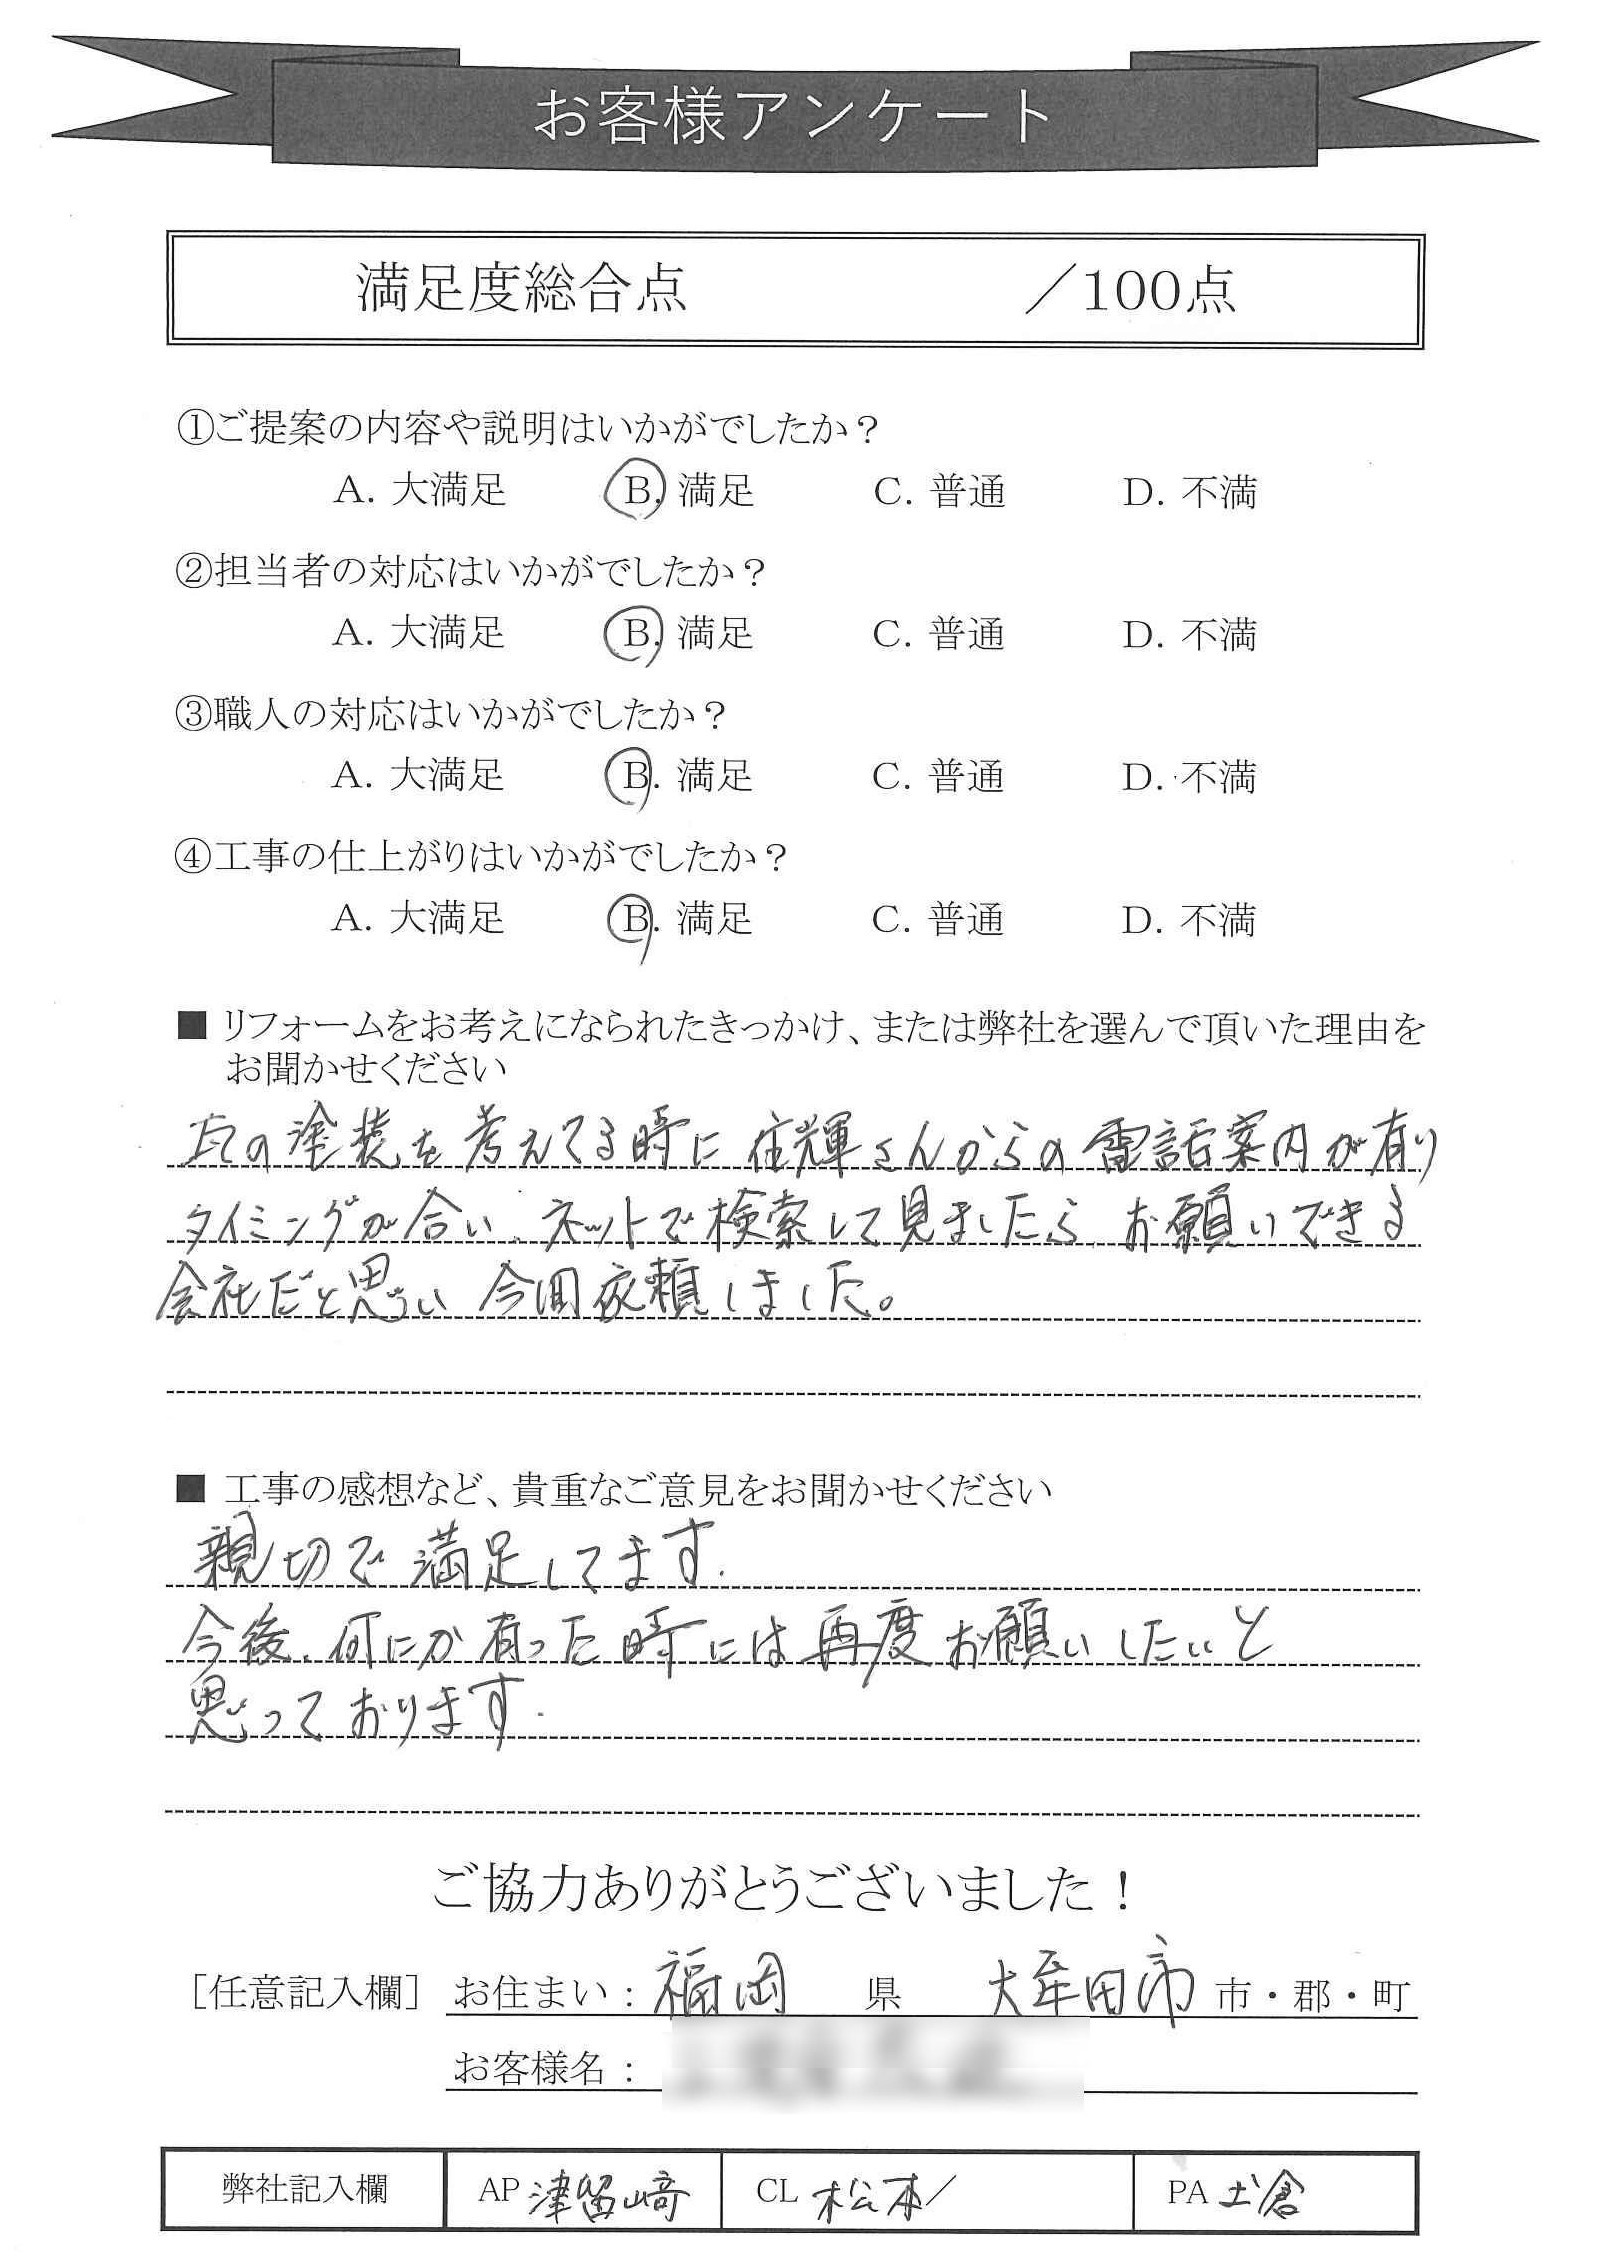 お客様アンケート
満足度総合点 ／100点
①ご提案の内容や説明はいかがでしたか？
A. 大満足 B. 満足 C. 普通 D. 不満
②担当者の対応はいかがでしたか？
A. 大満足 B. 満足 C. 普通 D. 不満
③職人の対応はいかがでしたか？
A. 大満足 B. 満足 C. 普通 D. 不満
④工事の仕上がりはいかがでしたか？
A. 大満足 B. 満足 C. 普通 D. 不満
■ リフォームをお考えになられたきっかけ、または弊社を選んで頂いた理由を
お聞かせください
瓦の塗装を考えてる時に住輝さんからの電話案内が有り
タイミングが合い、ネットで検索して見ましたら、お願いできる
会社だと思い 今回依頼しました。
■ 工事の感想など、貴重なご意見をお聞かせください
親切で満足してます.
今後、何にか有った時には再度お願いしたいと
思っております.
ご協力ありがとうございました！
［任意記入欄］ お住まい：福岡 県 大牟田市 市・郡・町
お客様名：
弊社記入欄 AP 津留﨑 CL 松本/ PA 土倉